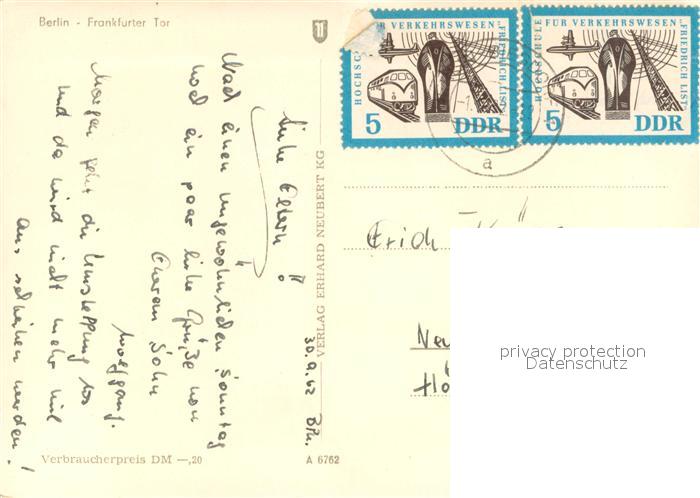 Berlin - Frankfurter Tor
30.9.62 Bln.
Liebe Eltern!
Nach einem ungewöhnlichen Sonntag
noch ein paar liebe Grüße von
Eurem Sohn
Wolfgang.
Morgen geht die Umschulung los
und da wird nicht mehr viel
aus schreiben werden!
Verbraucherpreis DM —,20
VERLAG ERHARD NEUBERT KG
A 6762
HOCHSCHULE FÜR VERKEHRSWESEN "FRIEDRICH LIST"
5 DDR
HOCHSCHULE FÜR VERKEHRSWESEN "FRIEDRICH LIST"
5 DDR
a
Erich
privacy protection
Datenschutz